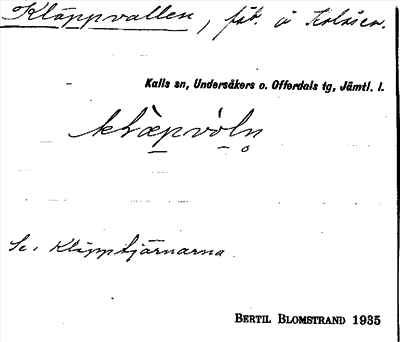 Kläppvallen, fäb. å Kolåsen.
Kalls sn, Undersåkers o. Offerdals tg, Jämtl. l.
klæpvòln
Se. Kläpptjärnarna.
BERTIL BLOMSTRAND 1935